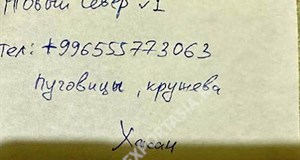 Новый Север √1
тел: +996555773063
пуговицы, кружева
Хасан